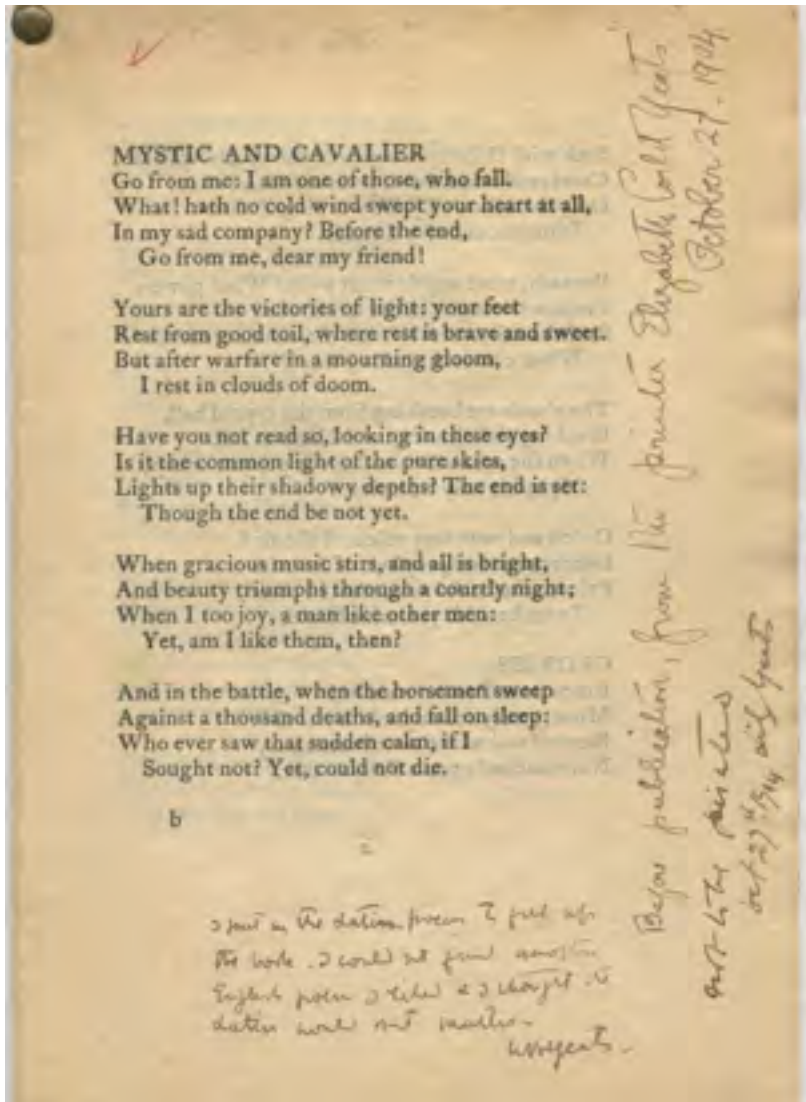 MYSTIC AND CAVALIER
Go from me: I am one of those, who fall.
What! hath no cold wind swept your heart at all,
In my sad company? Before the end,
Go from me, dear my friend!
Yours are the victories of light: your feet
Rest from good toil, where rest is brave and sweet.
But after warfare in a mourning gloom,
I rest in clouds of doom.
Have you not read so, looking in these eyes?
Is it the common light of the pure skies,
Lights up their shadowy depths? The end is set:
Though the end be not yet.
When gracious music stirs, and all is bright,
And beauty triumphs through a courtly night;
When I too joy, a man like other men:
Yet, am I like them, then?
And in the battle, when the horsemen sweep
Against a thousand deaths, and fall on sleep:
Who ever saw that sudden calm, if I
Sought not? Yet, could not die.
b
I put in the latin poem to fill up
the book. I could not find another
English poem I liked & I thought the
latin would not matter.
WBYeats.
Before publication, from the printer Elizabeth Corbet Yeats
October 27. 1904
sent to the printers
Oct 27th Yeats